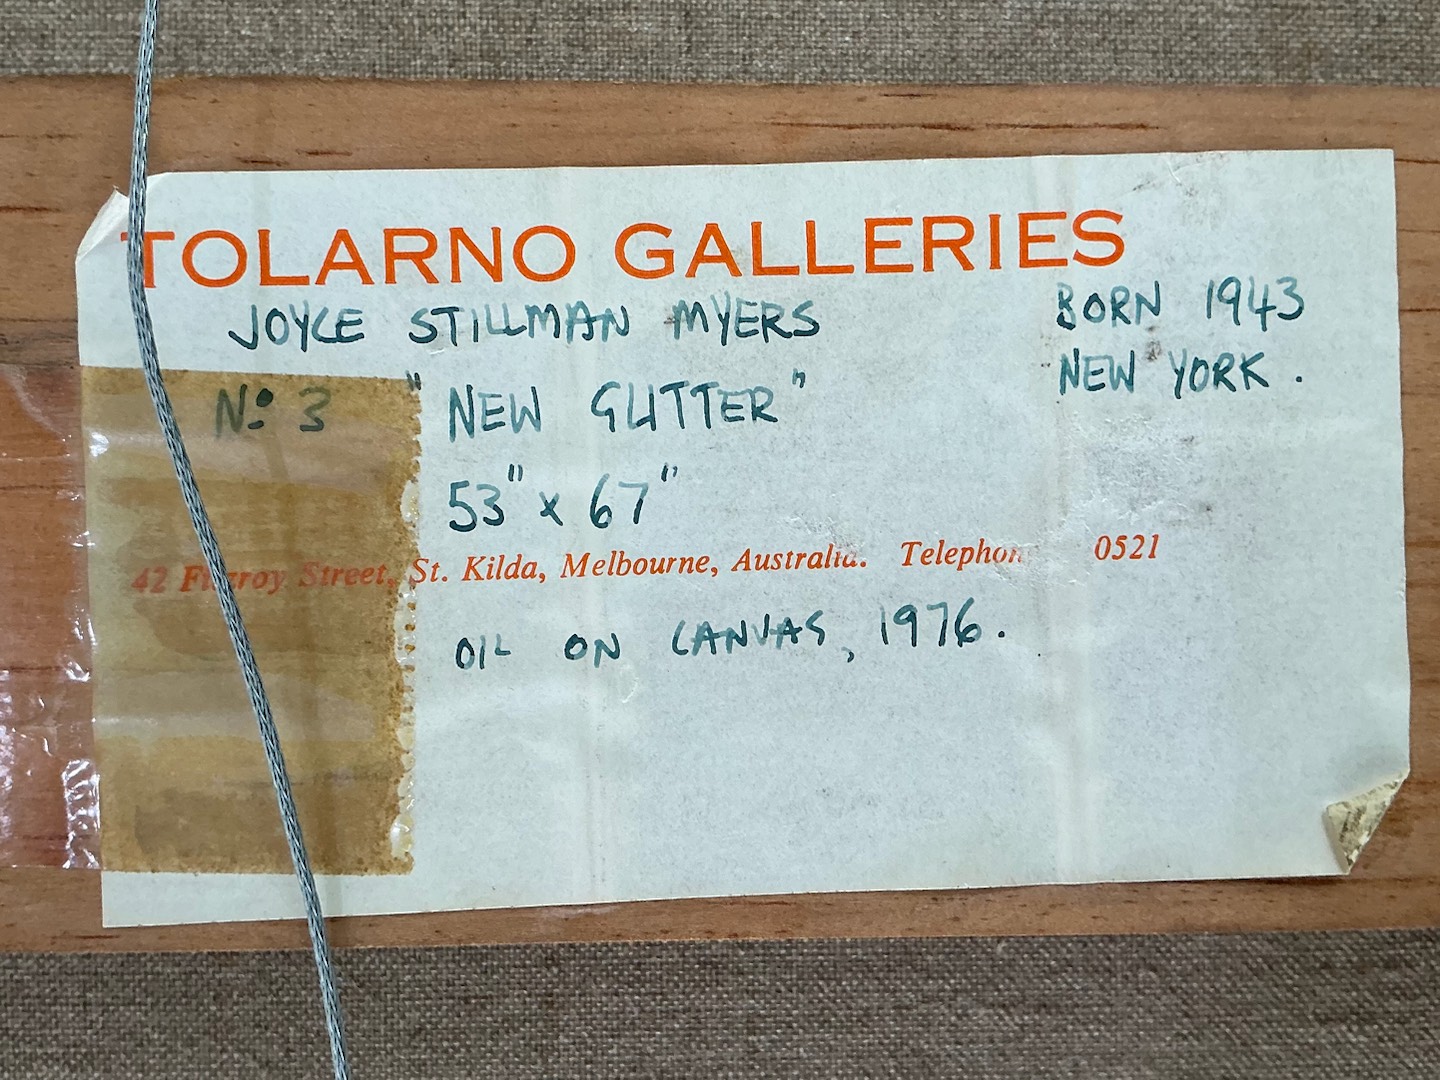 TOLARNO GALLERIES
JOYCE STILLMAN MYERS BORN 1943
NEW YORK.
No 3 "NEW GLITTER"
53" x 67"
42 Fitzroy Street, St. Kilda, Melbourne, Australia. 0521
OIL ON CANVAS, 1976.